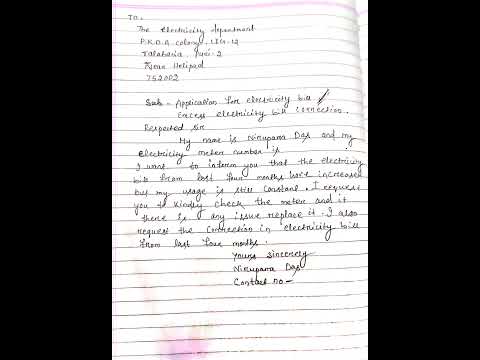 To,
The electricity department
P.K.D.A colony, LIG-12
Talabania Puri-2
Near Helipad
752002
Sub - Application for electricity bill /
Excess electricity bill connection.
Respected sir
My name is Nirupama Das and my
electricity meter number is
I want to inform you that the electricity
bill from last four months have increased
but my usage is still constant. I request
you to kindly check the meter and if
there is any issue replace it. I also
request the connection in electricity bill
from last four months.
Yours sincerely
Nirupama Das
Contact no -